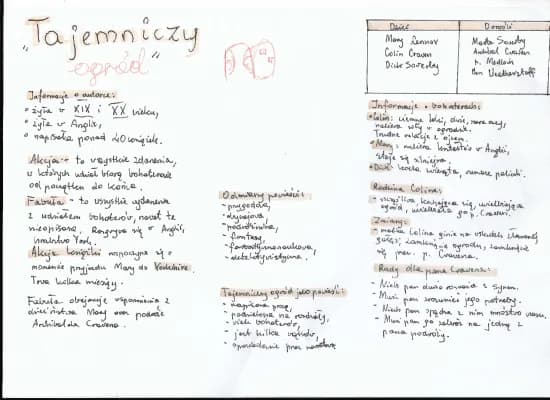 "Tajemniczy
ogród"
Informacje o autorce:
• żyła w XIX i XX wieku,
• żyła w Anglii,
• napisała ponad 40 książek.
Akcja - to wszystkie zdarzenia,
w których udział biorą bohaterowie
od początku do końca.
Fabuła - to wszystkie wydarzenia
z udziałem bohaterów, nawet te
nieopisane. Rozgrywa się w Anglii,
hrabstwo York.
Akcja książki rozpoczyna się o
momencie przyjazdu Mary do Yorkshire.
Trwa kilka miesięcy.
Fabuła obejmuje wspomnienia z
dzieciństwa Mary oraz podróże
Archibalda Cravena.
Odmiany powieści:
- przygodowa,
- podróżnicza,
- fantasy,
- fantastycznonaukowa,
- detektywistyczna.
Tajemniczy ogród jako powieść:
- napisana prozą,
- podzielona na rozdziały,
- wielu bohaterów,
- jest kilka wątków,
- opowiadana przez narratora
Dzieci
Dorośli
Mary Lennox
Colin Craven
Dick Sowerby
Marta Sowerby
Archibald Craven
p. Medlock
Ben
Informacje o bohaterach:
• Colin: ciemne loki, duże, szare oczy,
nabiera siły w ogrodzie.
Trudne relacje z ojcem.
• Mary: nabiera
staje się silniejsza.
• Dick: kocha zwierzęta, rumiane policzki.
Rodzina Colina:
- szczęśliwa, kochająca się, uwielbiająca
ogród, p. Craven.
Zmiany:
- matka Colina ginie na skutek złamanej
gałęzi, zamknięcie ogrodu, zamknięcie
się p. Cravena.
Rady dla pana Cravena:
- Niech pan dużo rozmawia z synem.
- Musi pan zrozumieć jego potrzeby.
- Niech pan spędza z nim mnóstwo czasu.
- Musi pan go zabrać na jedną z
pana podróży.